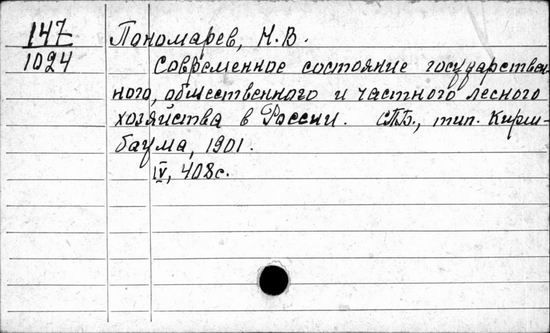 147 Пономарев, Н.В.
1024 Современное состояние государствен-
ного, общественного и частного лесного
хозяйства в России. СПБ., тип. Кирш-
баума, 1901.
IV, 408с.